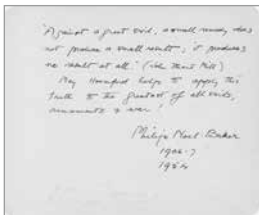 'Against a great evil, a small remedy does
not produce a small result; it produces
no result at all.' (John Stuart Mill)
May Haverford help to apply this
truth to the greatest of all evils,
armaments & war!
Philip Noel-Baker
1906-7